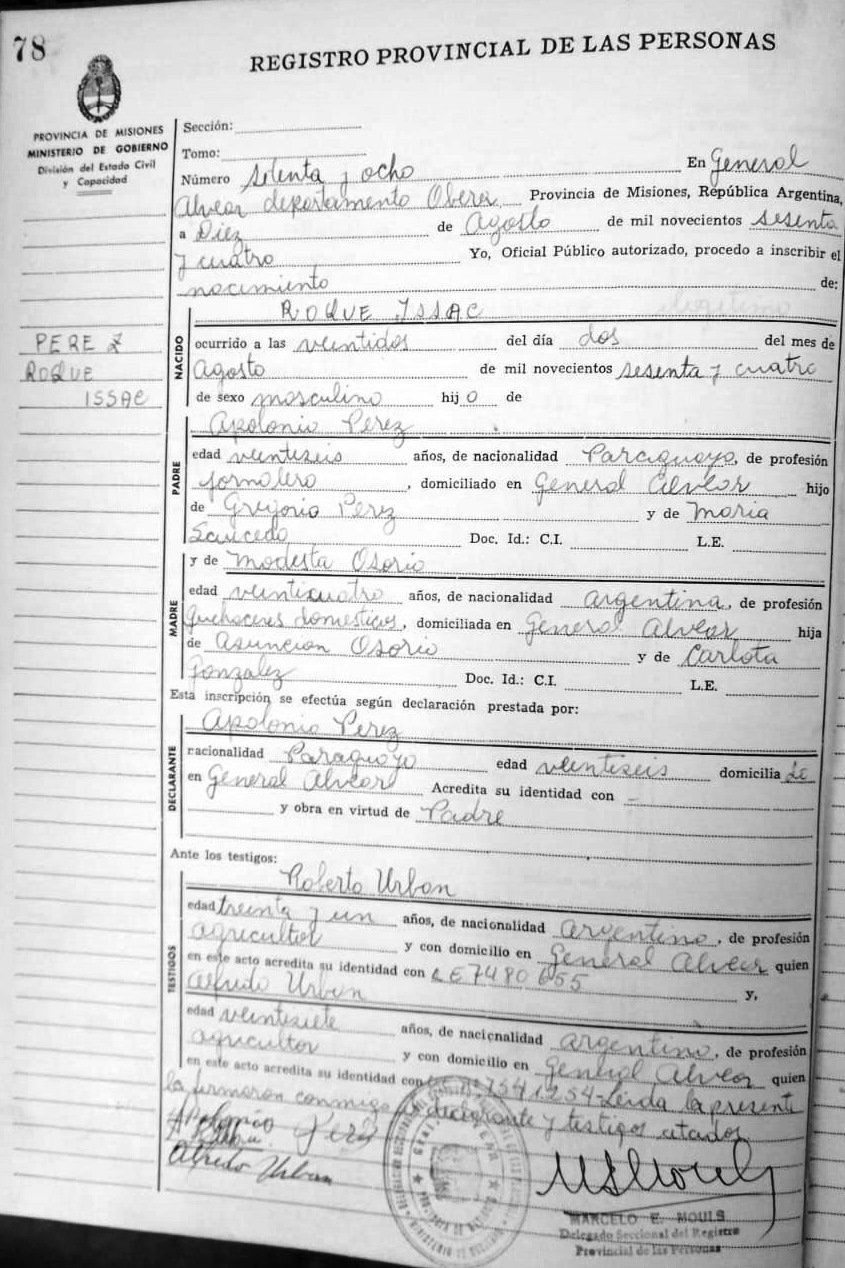 78
REGISTRO PROVINCIAL DE LAS PERSONAS
PROVINCIA DE MISIONES
MINISTERIO DE GOBIERNO
División del Estado Civil
y Capacidad
Sección:
Tomo:
Número setenta y ocho En General
Alvear departamento Obera Provincia de Misiones, República Argentina,
a Diez de Agosto de mil novecientos sesenta
y cuatro Yo, Oficial Público autorizado, procedo a inscribir el
nacimiento de:
ROQUE ISSAC legitimo
PEREZ
ROQUE
ISSAC
NACIDO
ocurrido a las veintidos del día dos del mes de
Agosto de mil novecientos sesenta y cuatro
de sexo masculino hijo de
Apolonio Perez
PADRE
edad veintiseis años, de nacionalidad Paraguayo, de profesión
jornalero, domiciliado en General Alvear hijo
de Gregorio Perez y de Maria
Saucedo Doc. Id.: C.I. L.E.
y de Modesta Osorio
MADRE
edad veinticuatro años, de nacionalidad argentina, de profesión
Quehaceres domesticos, domiciliada en General Alvear hija
de Asuncion Osorio y de Carlota
Gonzalez Doc. Id.: C.I. L.E.
Esta inscripción se efectúa según declaración prestada por:
Apolonio Perez
DECLARANTE
nacionalidad Paraguayo edad veintiseis domicilia de
en General Alvear Acredita su identidad con -
y obra en virtud de Padre
Ante los testigos:
Roberto Urban
TESTIGOS
edad treinta y un años, de nacionalidad argentino, de profesión
agricultor y con domicilio en General Alvear quien
en este acto acredita su identidad con LE 7480655
Alfredo Urban y,
edad veintisiete años, de nacionalidad argentino, de profesión
agricultor y con domicilio en General Alvear quien
en este acto acredita su identidad con 7541254 - Leida la presente
la firmaron conmigo declarante y testigos citados
Apolonio Perez
Alfredo Urban
MARCELO E. MOULS
Delegado Seccional del Registro
Provincial de las Personas